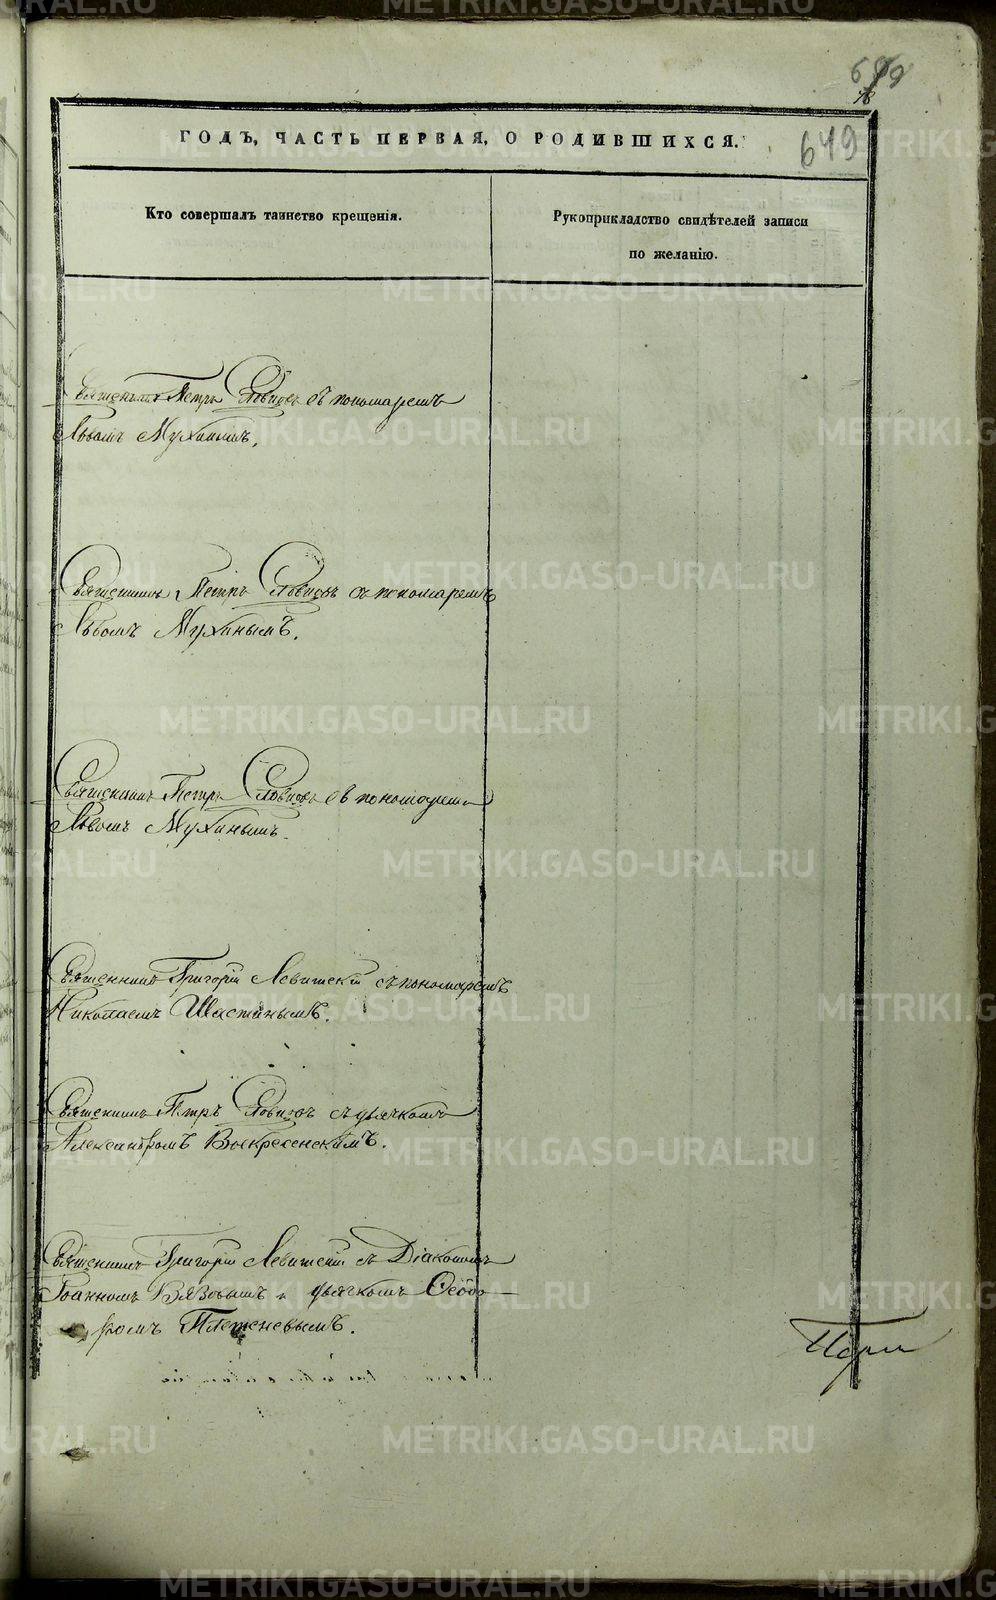 649
ГОДЪ, ЧАСТЬ ПЕРВАЯ, О РОДИВШИХСЯ.
Кто совершалъ таинство крещенія.
Рукоприкладство свидѣтелей записи
по желанію.
Священникъ Петръ Словцовъ съ пономаремъ
Львомъ Мухинымъ.
Священникъ Петръ Словцовъ съ пономаремъ
Львомъ Мухинымъ.
Священникъ Петръ Словцовъ съ пономаремъ
Львомъ Мухинымъ.
Священникъ Григорій Левитскій съ пономаремъ
Николаемъ Шастинымъ.
Священникъ Петръ Словцовъ съ дьячкомъ
Александромъ Воскресенскимъ.
Священникъ Григорій Левитскій съ Діакономъ
Іоанномъ Вязовымъ и дьячкомъ Ѳеодо-
ромъ Плотеневымъ.
METRIKI.GASO-URAL.RU